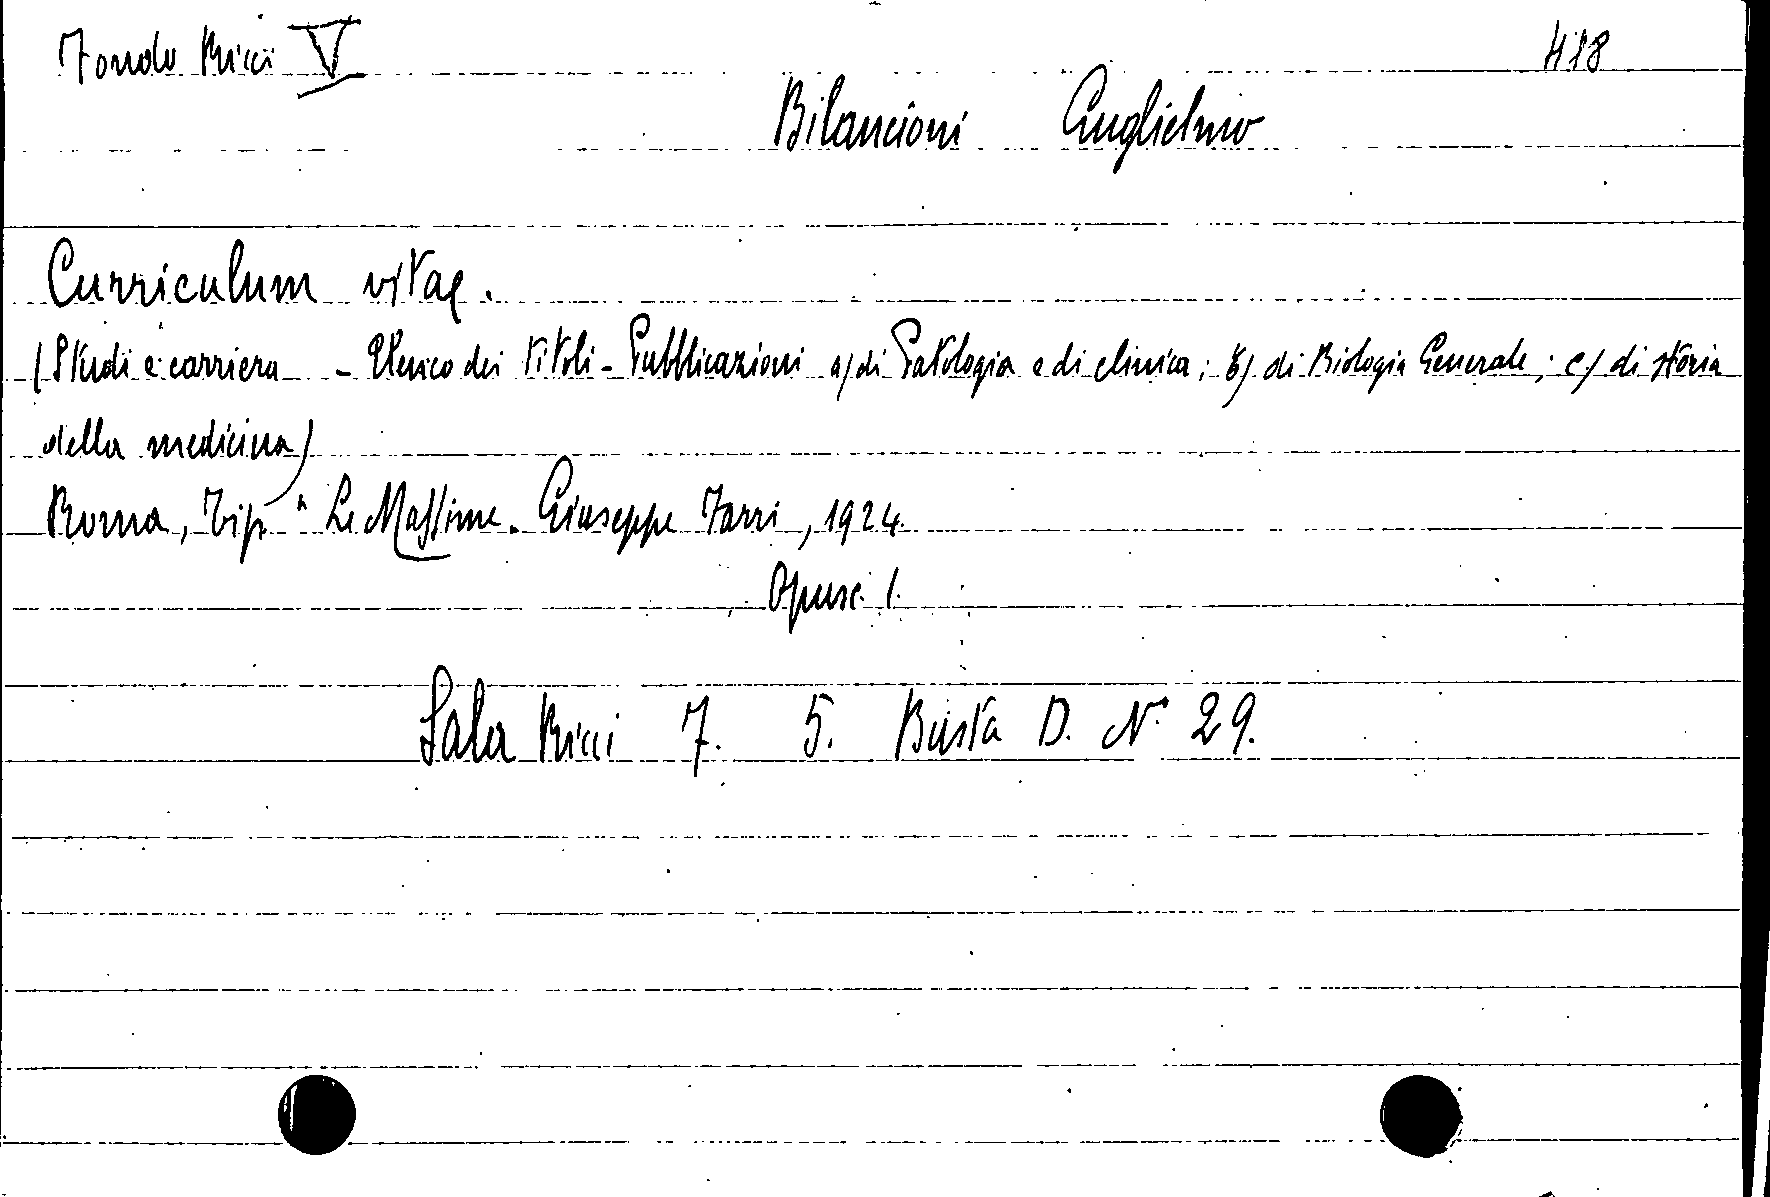 Fondo Ricci V 418
Bilancioni Guglielmo
Curriculum vitae.
(Studi e carriera - Elenico dei titoli - Pubblicazioni a) di Patologia e di clinica; b) di Biologia Generale; c) di storia
della medicina)
Roma, Tip. " Le Massime. Giuseppe Farri, 1924.
Opusc. 1.
Sala Ricci 7. 5. Busta D. N° 29.